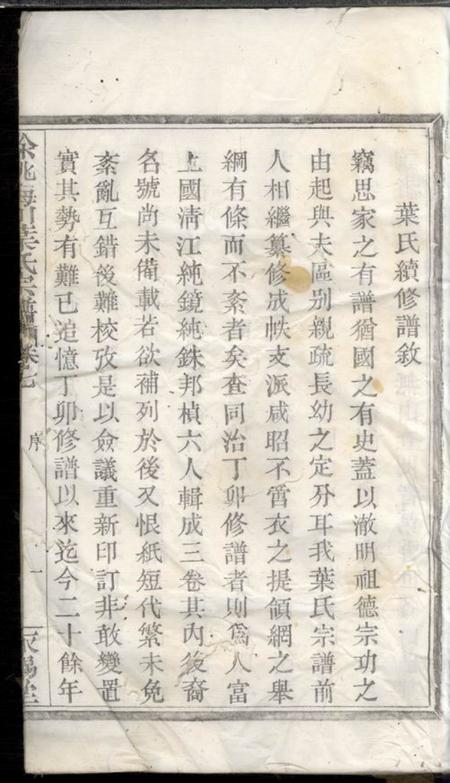 葉氏續修譜敘
竊思家之有譜猶國之有史蓋以澈明祖德宗功之
由起與夫區别親疏長幼之定分耳我葉氏宗譜前
人相繼纂修成帙支派咸昭不啻衣之提領網之舉
綱有條而不紊者矣查同治丁卯修譜者則爲人富
上國清江純鏡純銖邦楨六人輯成三卷其內後裔
名號尚未備載若欲補列於後又恨紙短代繁未免
紊亂互錯後難校攷是以僉議重新印訂非敢變置
實其勢有難已追憶丁卯修譜以來迄今二十餘年
余姚梅川葉氏宗譜卷七
序
一